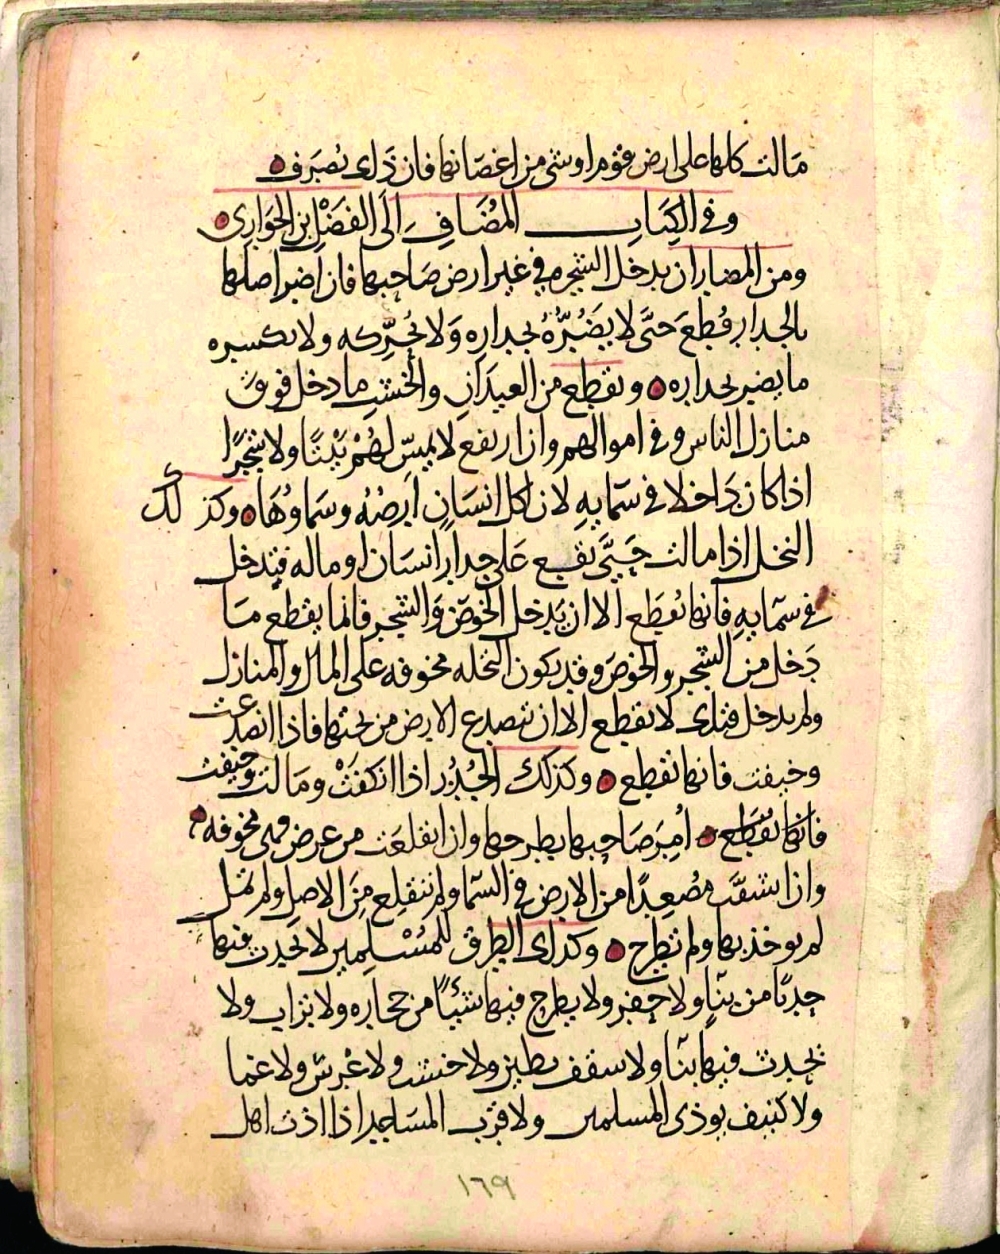 مالت كلها على ارض قوم او شي من اغصانها فان ذلك يصرف
وفي الكتاب المضاف الى الفضل بن الحواري
ومن المضار ان يدخل الشجره في غير ارض صاحبها فان اضر اصلها
بالجدار قُطع حتى لا يضرُّهُ بجداره ولا يُحرّكه ولا يكسره
ما يضير بجداره ويقطع من العيدان والخشب ما دخل فوق
منازل الناس وفي اموالهم وان ارتفع لا يمسّ لهُمْ بَيْتًا ولا شجرًا
اذا كان داخلا في سمايهِ لان لكل انسان ارضهُ وسماوُهَا وكذلك
النخل اذا مالت حتى تقع على جدار انسان او ماله فتدخل
في سمايهِ فانها تُقطَع الا ان يدخل الخوص والشجر فانما يقطع ما
دخل من الشجر والخوص وقد يكون النخله مخوفه على المال والمنازل
ولم يدخل فتلك لا تقطع الا ان تنصدع الارض من تحتها فاذا انصدعت
وخيفت فانها تقطع وكذلك الجُدُر اذا انكفتْ ومالت وخيفت
فانها تُقطَع اُمِرَ صاحبها بطرحها وان انقلعت من عرض فهي مخوفه
وان انشقّت مُصْعِدًا من الارض في السما ولم تنقلع مِنَ الاصل ولم تمل
لم يوخذ بها ولم تطرح وكذلك الطرق للمُسْلِمين لا يحدث فيها
حدثًا من بنا ولا حفر ولا يطرح فيها شيئًا من حجاره ولا تراب ولا
يحدث فيها بنا ولا سقف بطين ولا خشب ولا غرس ولا عما
ولا كنيف يوذي المسلمين ولا قرب المساجد اذا اذت اهل
١٦٩